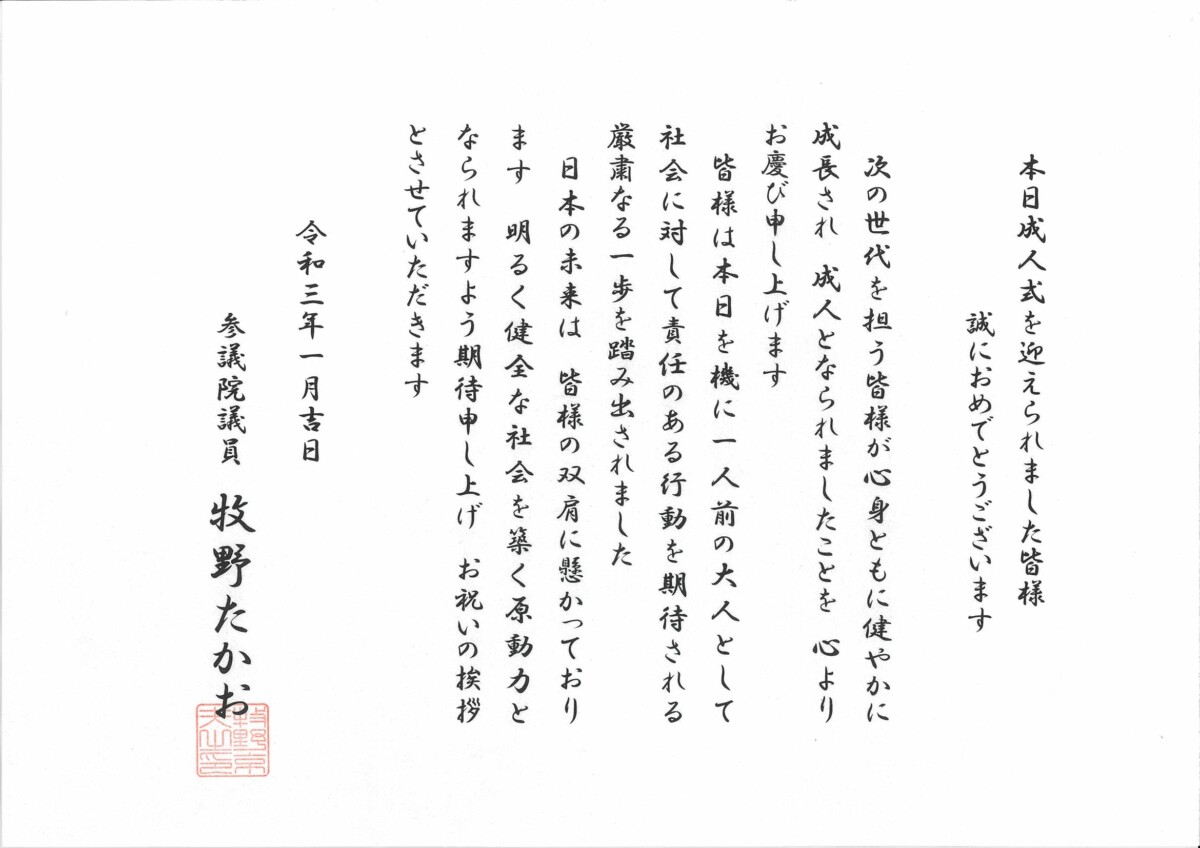 本日成人式を迎えられました皆様
誠におめでとうございます
次の世代を担う皆様が心身ともに健やかに
成長され　成人となられましたことを　心より
お慶び申し上げます
皆様は本日を機に一人前の大人として
社会に対して責任のある行動を期待される
厳粛なる一歩を踏み出されました
日本の未来は　皆様の双肩に懸かっており
ます　明るく健全な社会を築く原動力と
なられますよう期待申し上げ　お祝いの挨拶
とさせていただきます
令和三年一月吉日
参議院議員　牧野たかお